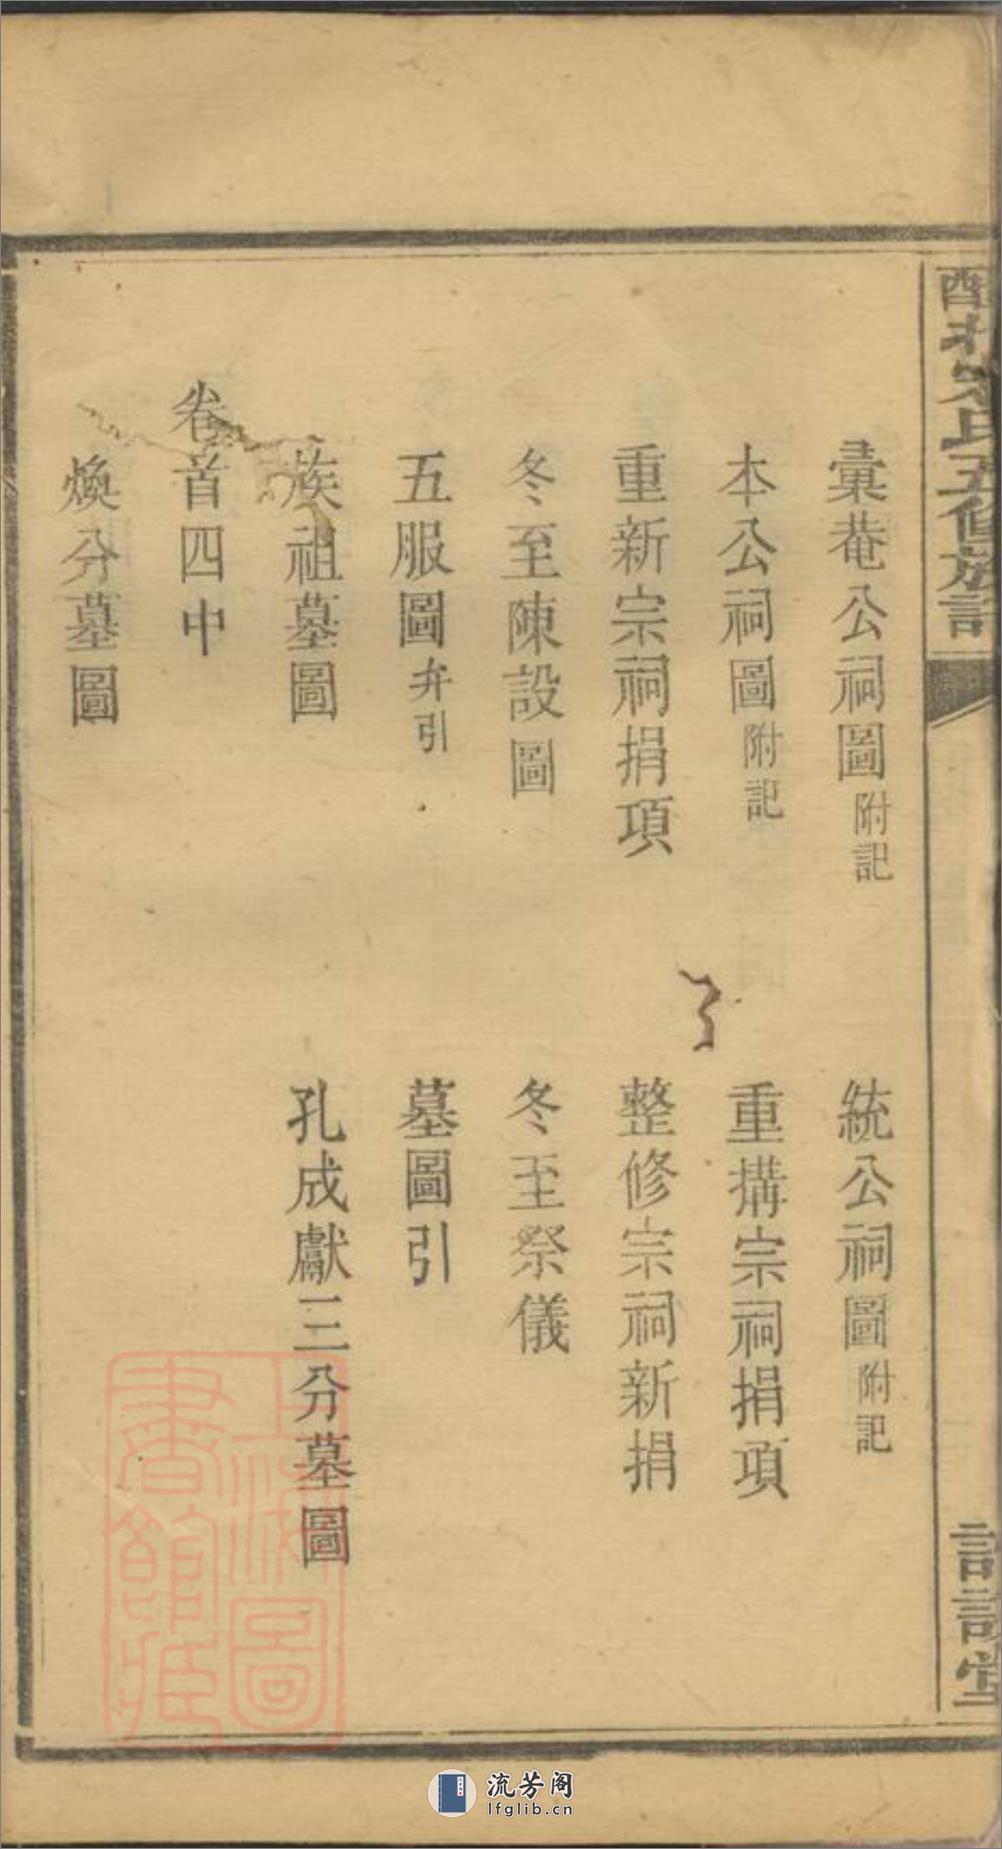 彙菴公祠圖附記
統公祠圖附記
本公祠圖附記
重搆宗祠捐項
重新宗祠捐項
整修宗祠新捐
冬至陳設圖
冬至祭儀
五服圖弁引
墓圖引
族祖墓圖
孔成獻三分墓圖
卷首四中
煥分墓圖
氏五修族
堂
上海圖書館藏
流芳阁
lfglib.cn